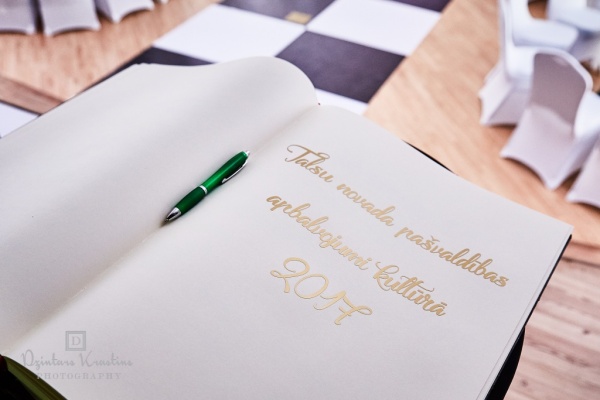 Talsu novada pašvaldības
apbalvojumi kultūrā
2017
D
Dzintars Krastins
PHOTOGRAPHY